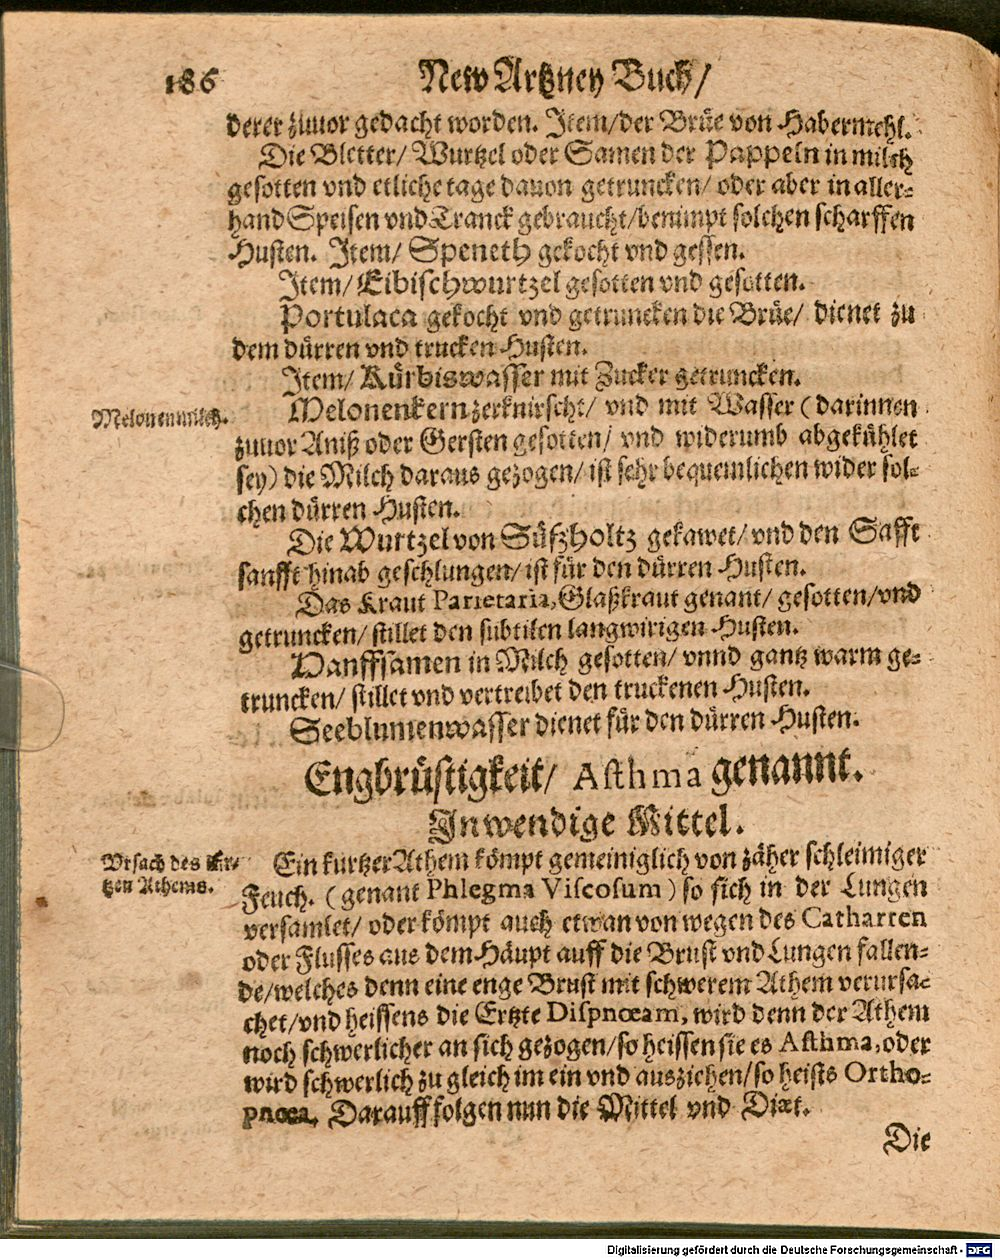 186 New Artzney Buch/
derer zuuor gedacht worden. Item/der Brüe von Habermehl.
Die Bletter/ Wurtzel oder Samen der Pappeln in milch
gesotten vnd etliche tage dauon getruncken/ oder aber in aller-
hand Speisen vnd Tranck gebraucht/benimpt solchen scharffen
Husten. Item/ Speneth gekocht vnd gessen.
Item/ Eibischwurtzel gesotten vnd gesotten.
Portulaca gekocht vnd getruncken die Brüe/ dienet zu
dem dürren vnd trucken Husten.
Item/ Kürbiswasser mit Zucker getruncken.
Melonenmilch.
Melonenkern zerknirscht/ vnd mit Wasser (darinnen
zuuor Aniß oder Gersten gesotten/ vnd widerumb abgekühlet
sey) die Milch daraus gezogen/ ist sehr bequemlichen wider sol-
chen dürren Husten.
Die Wurtzel von Süßholtz gekawet/ vnd den Safft
sanfft hinab geschlungen/ ist für den dürren Husten.
Das Kraut Parietaria, Glaßkraut genant/ gesotten/vnd
getruncken/ stillet den subtilen langwirigen Husten.
Hanffsamen in Milch gesotten/ vnnd gantz warm ge-
truncken/ stillet vnd vertreibet den truckenen Husten.
Seeblumenwasser dienet für den dürren Husten.
Engbrüstigkeit/ Asthma genannt.
Inwendige Mittel.
Vrsach des kur-
tzen Athems.
Ein kurtzer Athem kömpt gemeiniglich von zäher schleimiger
Feuch. (genant Phlegma Viscosum) so sich in der Lungen
versamlet/ oder kömpt auch etwan von wegen des Catharren
oder Flusses aus dem Häupt auff die Brust vnd Lungen fallen-
de/welches denn eine enge Brust mit schwerem Athem verursa-
chet/vnd heissens die Ertzte Dispnœam, wird denn der Athem
noch schwerlicher an sich gezogen/so heissen sie es Asthma, oder
wird schwerlich zu gleich im ein vnd ausziehen/so heists Ortho-
pnœa. Darauff folgen nun die Mittel vnd Diæt.
Die
Digitalisierung gefördert durch die Deutsche Forschungsgemeinschaft - DFG